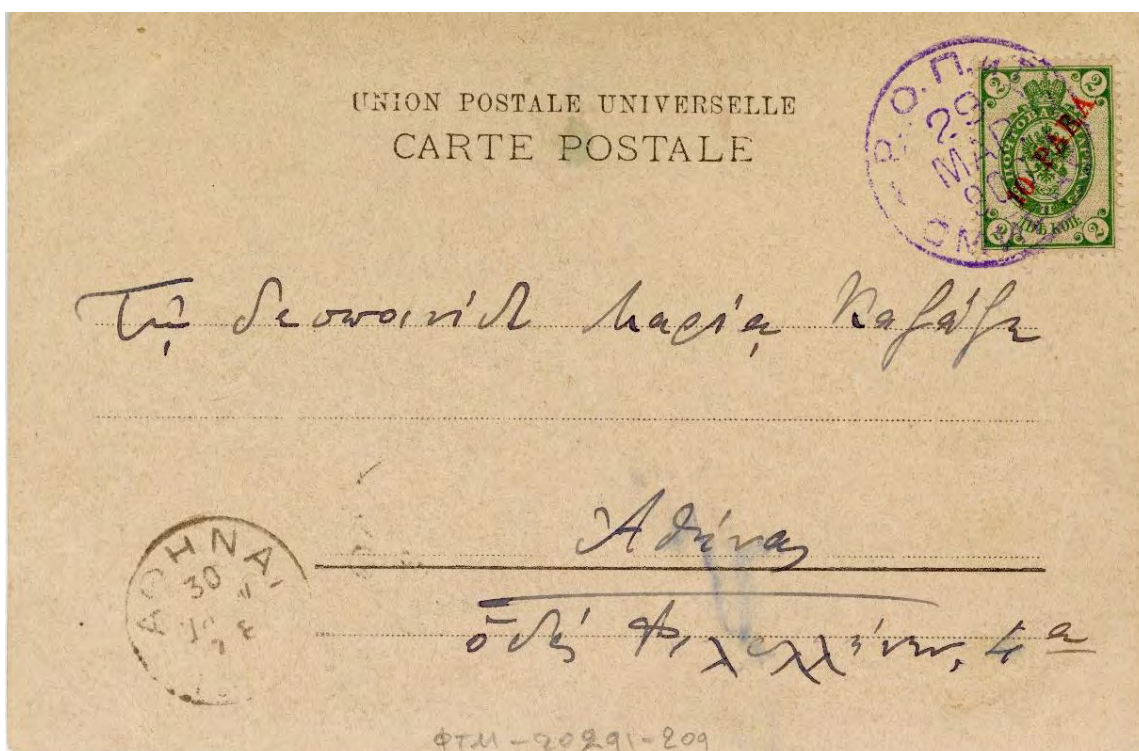 UNION POSTALE UNIVERSELLE
CARTE POSTALE
Р.О.П.и
29
МАР
90
СМ
2 2
ПОЧТОВАЯ МАРКА
10 PARA
ДВѢ КОП.
2 2
Τῇ δεσποινίδι Μαρίᾳ Καζάζη
Ἀθήνας
ὁδὸς Φιλελλήνων, 4α
ΑΘΗΝΑΙ
30
ΦΤΜ-20291-209